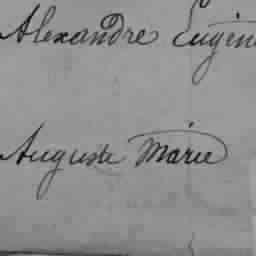 Alexandre Eugèn
Auguste Marie